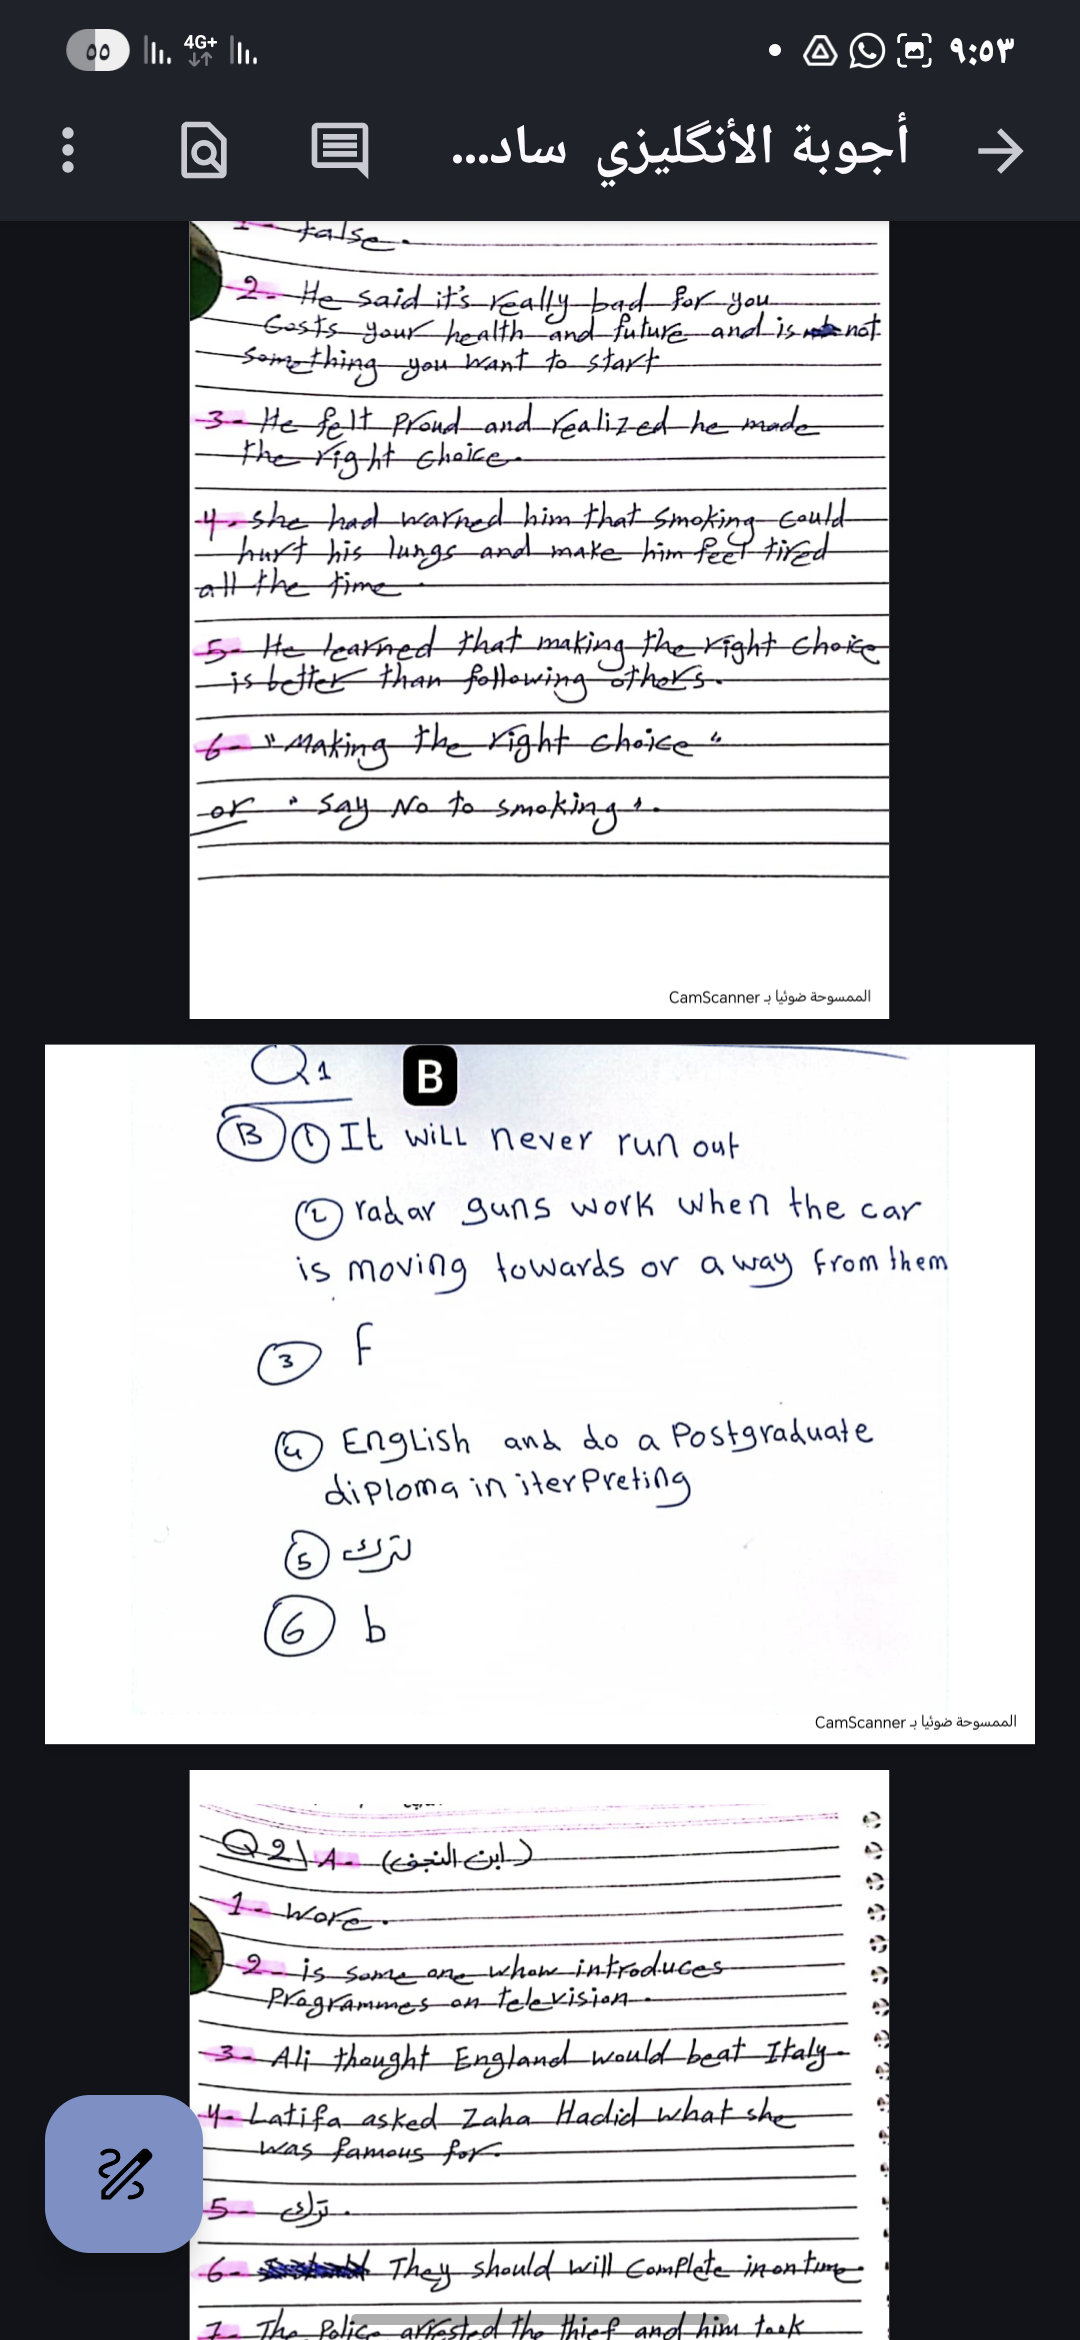 ٥٥ 4G+ ٩:٥٣
أجوبة الأنگليزي ساد...
1- false.
2- He said it's really bad for you
Costs your health and future and is not
something you want to start
3- He felt proud and realized he made
the right choice.
4. she had warned him that smoking could
hurt his lungs and make him feel tired
all the time.
5- He learned that making the right choice
is better than following others.
6- "Making the right choice"
or "Say No to smoking".
الممسوحة ضوئيا بـ CamScanner
Q1 B
B 1 It will never run out
2 radar guns work when the car
is moving towards or away from them
3 F
4 English and do a Postgraduate
diploma in iterpreting
5 ترك
6 b
الممسوحة ضوئيا بـ CamScanner
Q2\ A- (ابن النجف)
1- Wore.
2- is some one whow introduces
Programmes on television.
3- Ali thought England would beat Italy-
4- Latifa asked Zaha Hadid what she
was famous for.
5- ترك.
6- They should will complete in on time.
7- The Police arrested the thief and him took